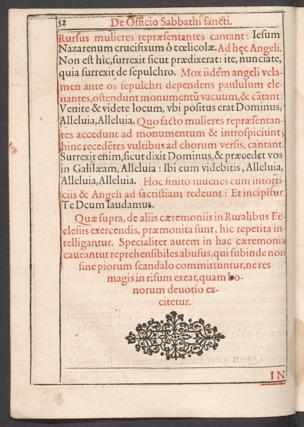 52 De Officio Sabbathi sancti.
Rursus mulieres repræsentantes cantant: Iesum
Nazarenum crucifixum ô cœlicolæ. Ad hęc Angeli.
Non est hic, surrexit sicut prædixerat: ite, nunciate,
quia surrexit de sepulchro. Mox iidẽm angeli vela-
men ante os sepulchri dependens paululum ele-
uantes, ostendunt monumentũ vacuum, & cãtant:
Venite & videte locum, vbi positus erat Dominus,
Alleluia, Alleluia. Quo facto mulieres repræsentan-
tes accedunt ad monumentum & introspiciunt,
hinc recedẽtes vultibus ad chorum versis, cantant.
Surrexit enim, sicut dixit Dominus, & præcedet vos
in Galilæam, Alleluia: Ibi eum videbitis, Alleluia,
Alleluia, Alleluia. Hoc finito iuuenes cum
ciis & Angeli ad sacristiam redeunt: Et incipitur.
Te Deum laudamus.
Quæ supra, de aliis cæremoniis in Ruralibus Ec-
clesiis exercendis, præmonita sunt, hic repetita in-
telligantur. Specialiter autem in hac cæremonia
caueantur reprehensibiles abusus, qui subinde non
sine piorum scandalo committuntur, ne res
magis in risum exeat, quam bo-
norum deuotio ex-
citetur.
IN